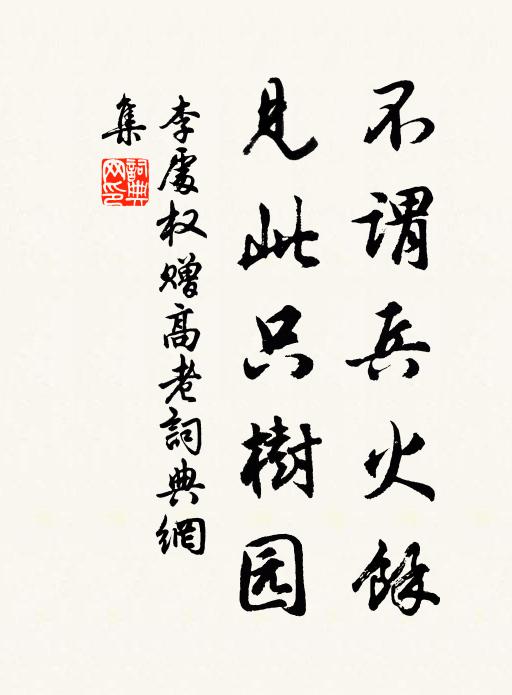 不谓兵火馀
见此只樹园
李處权赠高老詞典網
集
詞典网印